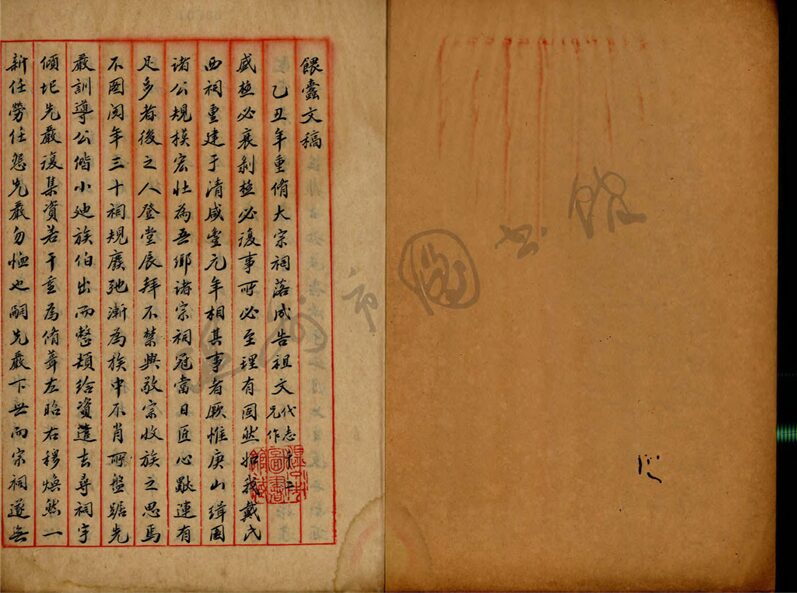 餵蠹文稿
乙丑年重脩大宗祠落成告祖文
盛極必衰剝極必復事所必至理有固然我戴氏
西祠重建于清咸豐元年相其事者厥惟庚山緯圃
諸公規模宏壯為吾鄉諸宗祠冠當日匠心連有
足多者後之人登堂展拜不禁興敬宗收族之思焉
不圖閱年三十祠規廢弛漸為族中不肖所盤踞先
嚴訓導公偕小池族伯出而整頓給資遣去尋祠宇
傾圮先嚴復集資若干重為脩葺左昭右穆煥然一
新任勞任怨先嚴勿恤也嗣先嚴下世而宗祠遂無
溫州市圖書館